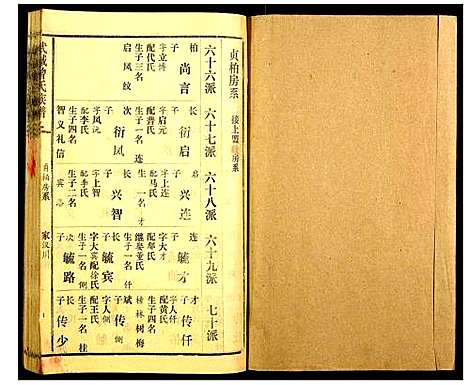 贞柏房系
接上盟 房系
六十六派
六十七派
六十八派
六十九派
七十派
柏
子
尚言
字立榜
配代氏
生子三名
启 凤 纹
长
子
衍启
字启元
配龚氏
生子一名
连
次
子
衍凤
字凤沅
配李氏
生子四名
智 义 礼 信
启
长
子
兴连
字上连
配马氏
生子一名
才
长
子
兴智
字上智
配李氏
生子二名
宾 路
连
子
毓才
字大才
配邹氏
继娶董氏
生子四名
长
子
毓宾
字大宾配徐氏
生子一名
次
子
毓路
才
长
子
传仟
字人仟
配黄氏
生子四名
林 树 梅
斌
子
传
字人
配王氏
生子一名 桂
长
子
传少
武城曾氏族谱
贞柏房系
家汉川